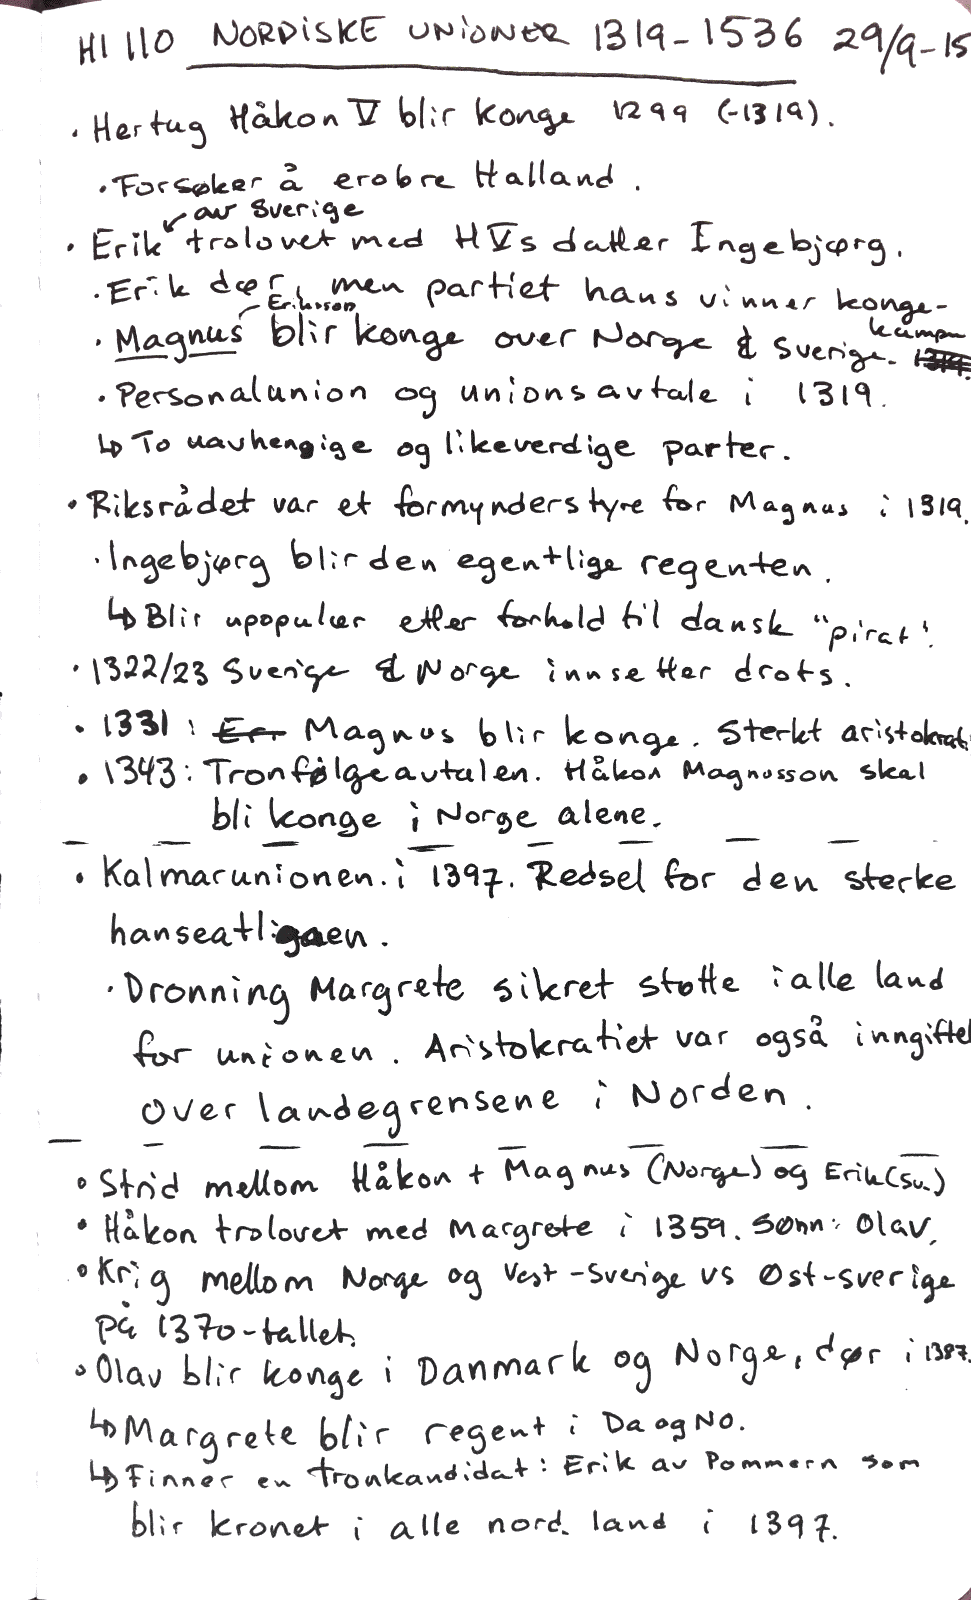 HI 110 NORDISKE UNIONER 1319-1536 29/9-15
• Hertug Håkon V blir konge 1299 (-1319).
• Forsøker å erobre Halland.
av Sverige
• Erik trolovet med HVs datter Ingebjørg.
• Erik dør, men partiet hans vinner konge-
kampen
Eriksson
• Magnus blir konge over Norge & Sverige. 1319.
• Personalunion og unionsavtale i 1319.
↳ To uavhengige og likeverdige parter.
• Riksrådet var et formynderstyre for Magnus i 1319.
• Ingebjørg blir den egentlige regenten.
↳ Blir upopulær etter forhold til dansk "pirat".
• 1322/23 Sverige & Norge innsetter drots.
• 1331: Magnus blir konge. Sterkt aristokrati
• 1343: Tronfølgeavtalen. Håkon Magnusson skal
bli konge i Norge alene.
• Kalmarunionen. i 1397. Redsel for den sterke
hanseatligaen.
• Dronning Margrete sikret støtte i alle land
for unionen. Aristokratiet var også inngiftet
over landegrensene i Norden.
• Strid mellom Håkon + Magnus (Norge) og Erik (Sv.)
• Håkon trolovet med Margrete i 1359. Sønn: Olav.
• Krig mellom Norge og Vest-Sverige vs Øst-sverige
på 1370-tallet.
• Olav blir konge i Danmark og Norge, dør i 1387.
↳ Margrete blir regent i Da og NO.
↳ Finner en tronkandidat: Erik av Pommern som
blir kronet i alle nord. land i 1397.